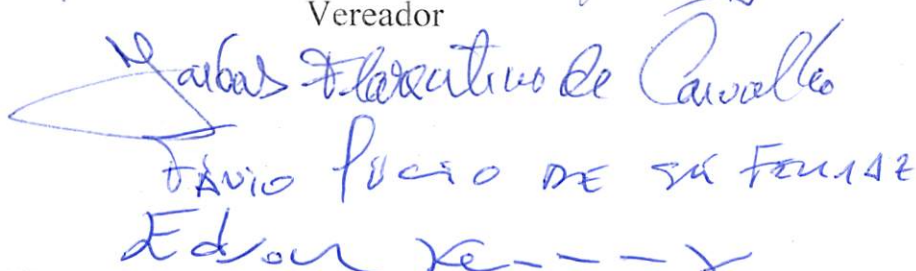 Vereador
Jarbas Florentino de Carvalho
Fávio Lúcio DE Sá FERRAZ
Edson